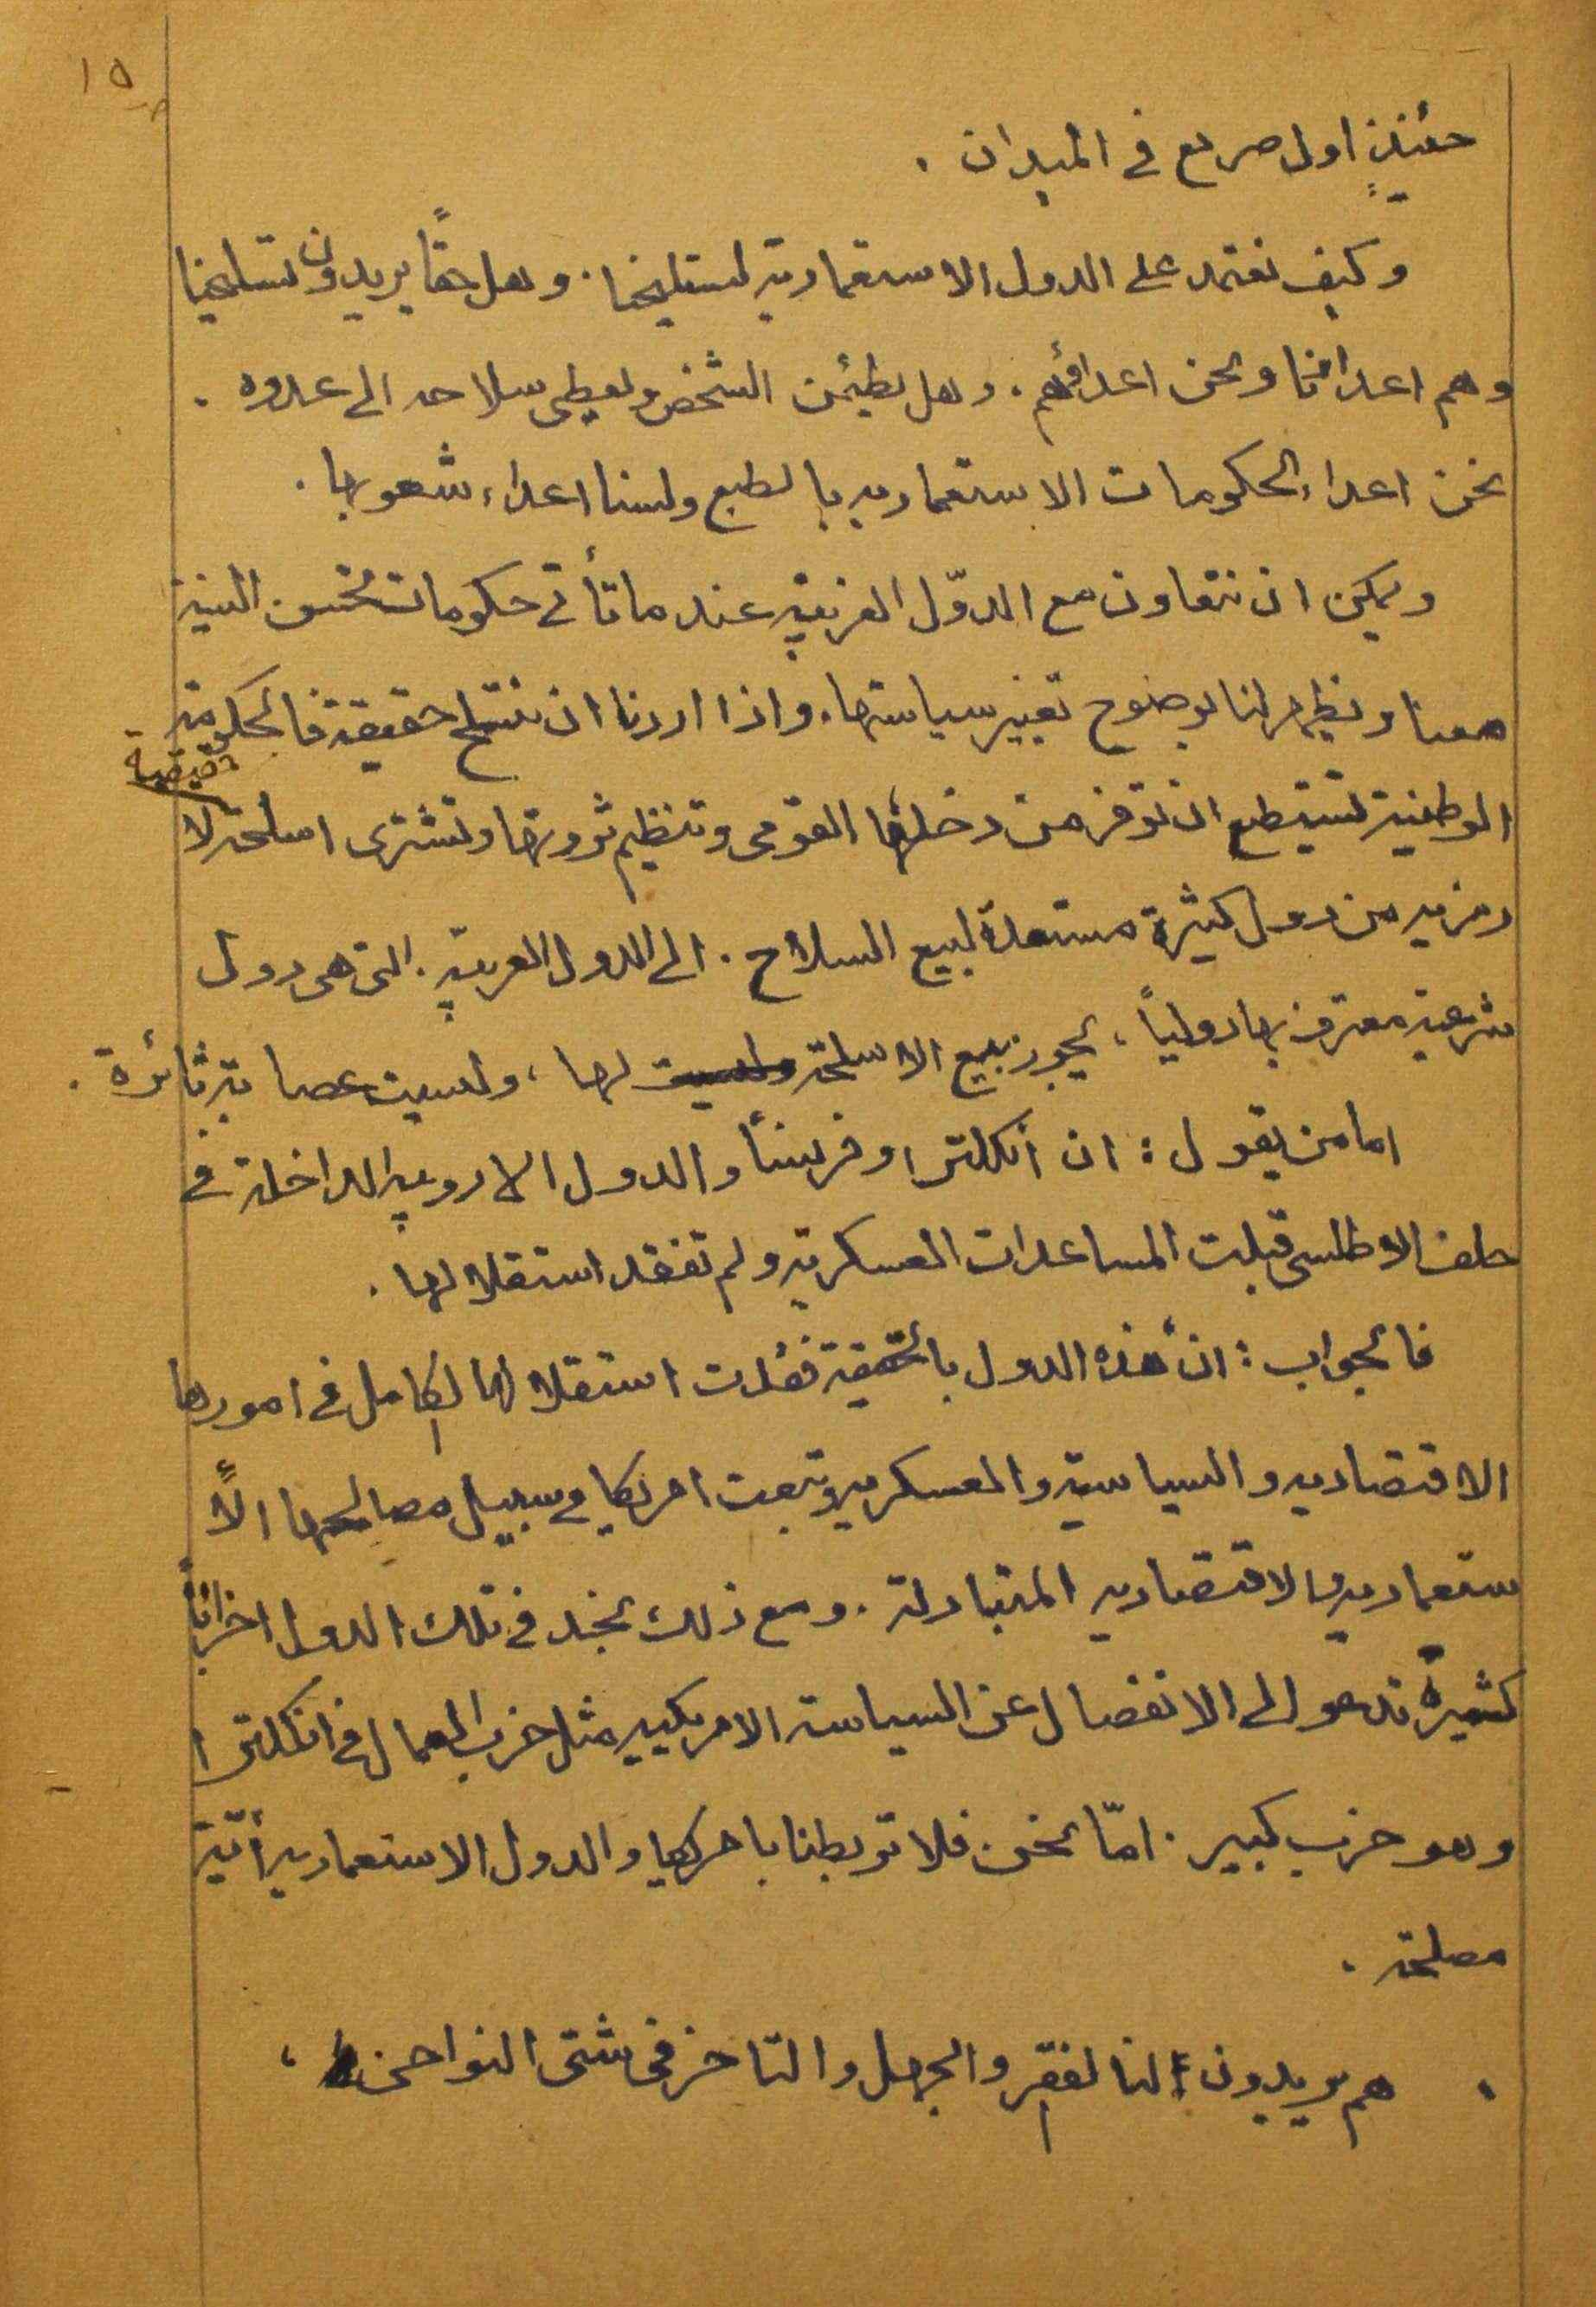 ١٥
حئنذٍ اول صريع في الميدان .
وكيف نعتمد على الدول الاستعمارية لتسليحنا . وهل حقاً يريدون تسليحنا
وهم اعدائنا ونحن اعدائهم . وهل يطمئن الشخص ويعطي سلاحه الى عدوه .
نحن اعداء الحكومات الاستعماريه بالطبع ولسنا اعداء شعوبها .
ويمكن ان نتعاون مع الدوّل الغربية عندما تأتي حكومات تحسن النية
معنا ونظهر لنا بوضوح تغيير سياستها . واذا اردنا ان نتسلح حقيقة فالحكومة
الوطنية تستطيع ان توفر من دخلها القومي وتنظيم ثروتها وتشتري اسلحة حقيقية لا
رمزيه من دول كثيرة مستعدة لبيع السلاح . الى الدول العربية . التي هي دول
شرعية معترف بها دولياً ، يجوز بيع الاسلحة وليست لها ، وليست عصابة ثائرة .
اما من يقول : ان انكلترا وفرنسا والدول الاروبيه الداخلة في
حلف الاطلسي قبلت المساعدات العسكرية ولم تفقد استقلالها .
فالجواب : ان هذه الدول بالحقيقة فقدت استقلالها الكامل في امورها
الاقتصاديه والسياسية والعسكريه وتبعت امريكا في سبيل مصالحها الأ
ستعماريه والاقتصاديه المتبادلة . ومع ذلك نجد في تلك الدول احزاباً
كثيرة تدعو الى الانفصال عن السياسة الامريكييه مثل حزب العمال في انكلترا
وهو حزب كبير . امّا نحن فلا تربطنا بامريكا والدول الاستعماريه أيّة
مصلحة .
هم يريدون لنا الفقر والجهل والتاخر في شتى النواحي ،